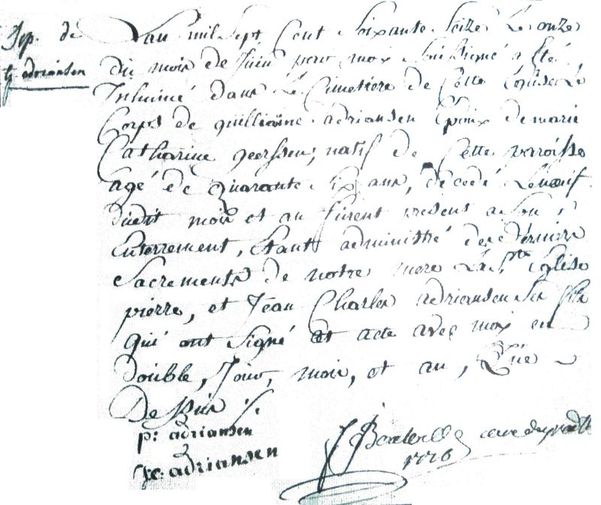 Sep. de
g. adriansen
L'an mil sept cent soixante seize le onze
du mois de juin par moi soussigné a été
Inhumé dans le Cimetiere de cette Eglise le
Corps de guilliaume adriansen Epoux de marie
Catharine geerssen, natif de cette paroisse
agé de quarante six ans, decedé le neuf
dudit mois et an furent present a son
Enterrement, Etant administré des dernière
Sacrements de notre mere la Ste Eglise
pierre, et Jean Charles adriansen ses fils
qui ont signé cet acte avec moi en
double, Jour, mois, et an, que
Dessus
p: adriansen
jc: adriansen
curé
1776